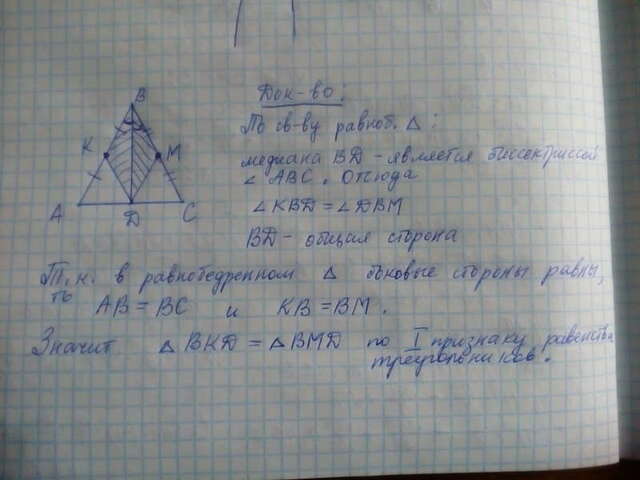 B
K
M
A
D
C
Док-во:
По св-ву равноб. △:
медиана BD - является биссектриссой
∠ ABC. Отсюда
∠KBD = ∠DBM
BD - общая сторона
Т.к. в равнобедренном △ боковые стороны равны,
то AB = BC и KB = BM.
Значит △BKD = △BMD по I признаку равенства
треугольников.